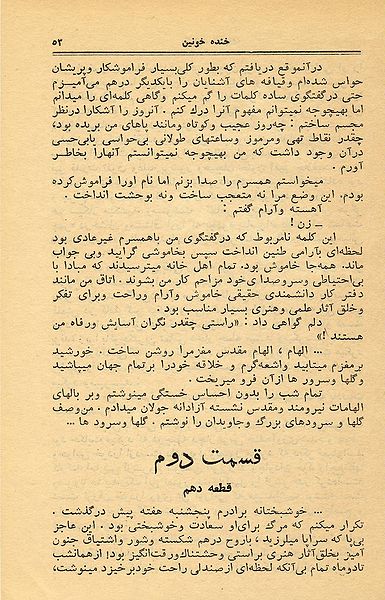 خنده خونین
۵۳
درآنموقع دریافتم که بطور کلی‌بسیار فراموشکار وپریشان
حواس شده‌ام وقیافه های آشنایان را بایکدیگر درهم می‌آمیزم
حتی درگفتگوی ساده کلمات را گم میکنم وگاهی کلمه‌ای را میدانم
اما بهیچوجه نمیتوانم مفهوم آنرا درك کنم . آنروز را آشکارا درنظر
مجسم ساختم : چه‌روز عجیب وکوتاه ومانند پاهای من بریده بود،
چقدر نقاط تهی ومرموز وساعتهای طولانی بی‌حواسی یابی‌حسی
درآن وجود داشت که من بهیچوجه نمیتوانستم آنهارا بخاطر
آورم .
میخواستم همسرم را صدا بزنم اما نام اورا فراموش‌کرده
بودم. این وضع مرا نه متعجب ساخت ونه بوحشت انداخت .
آهسته وآرام گفتم :
ــ زن !
این کلمه نامربوط که درگفتگوی من باهمسرم غیرعادی بود
لحظه‌ای بآرامی طنین انداخت سپس بخاموشی گرایید وبی جواب
ماند. همه‌جا خاموش بود. تمام اهل خانه میترسیدند که مبادا با
بی‌احتیاطی وسروصدای‌خود مزاحم کار من بشوند. اتاق من مانند
دفتر کار دانشمندی حقیقی خاموش وآرام وراحت وبرای تفکر
وخلق آثار علمی وهنری بسیار مناسب بود .
دلم گواهی داد : «راستی چقدر نگران آسایش ورفاه من
هستند !»
... الهام ، الهام مقدس مغزمرا روشن ساخت . خورشید
برمغزم میتابید واشعه‌گرم و خلاقه خودرا برتمام جهان میپاشید
وگلها وسرور ها ازآن فرو میریخت .
تمام شب را بدون احساس خستگی مینوشتم وبر بالهای
الهامات نیرومند ومقدس نشسته آزادانه جولان میدادم . من‌وصف
گلها و سرودهای بزرگ وجاویدان را نوشتم . گلها وسرود ها ...
قسمت دوم
قطعه دهم
... خوشبختانه برادرم پنجشنبه هفته پیش درگذشت .
تکرار میکنم که مرگ برای‌او سعادت وخوشبختی بود . این عاجز
بی‌پا که سراپا میلرزید ، باروح درهم شکسته وشور واشتیاق جنون
آمیز بخلق‌آثار هنری براستی وحشتناك‌ورقت‌انگیز بود! ازهمانشب
تادوماه تمام بی‌آنکه لحظه‌ای ازصندلی راحت خودبرخیزد مینوشت،